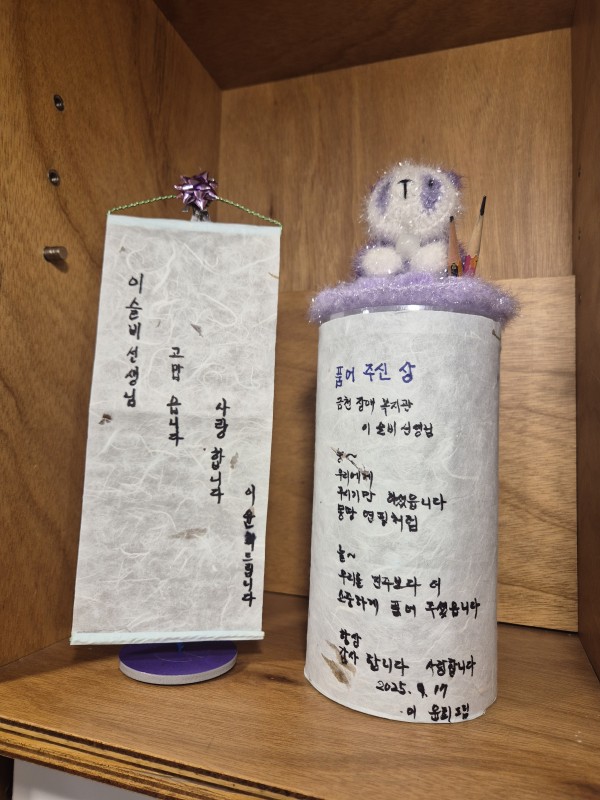 이슬비선생님
고맙 읍니다
사랑합니다
이 드립니다
품어 주신 상
금천 장애 복지관
이 슬비 선생님
늘~
우리에게
주시기만 하셨읍니다
몽당 연필처럼
늘~
우리를 진주보다 더
소중하게 품어 주셨읍니다
항상
감사 합니다 사랑합니다
2025. 9. 17
이 드림